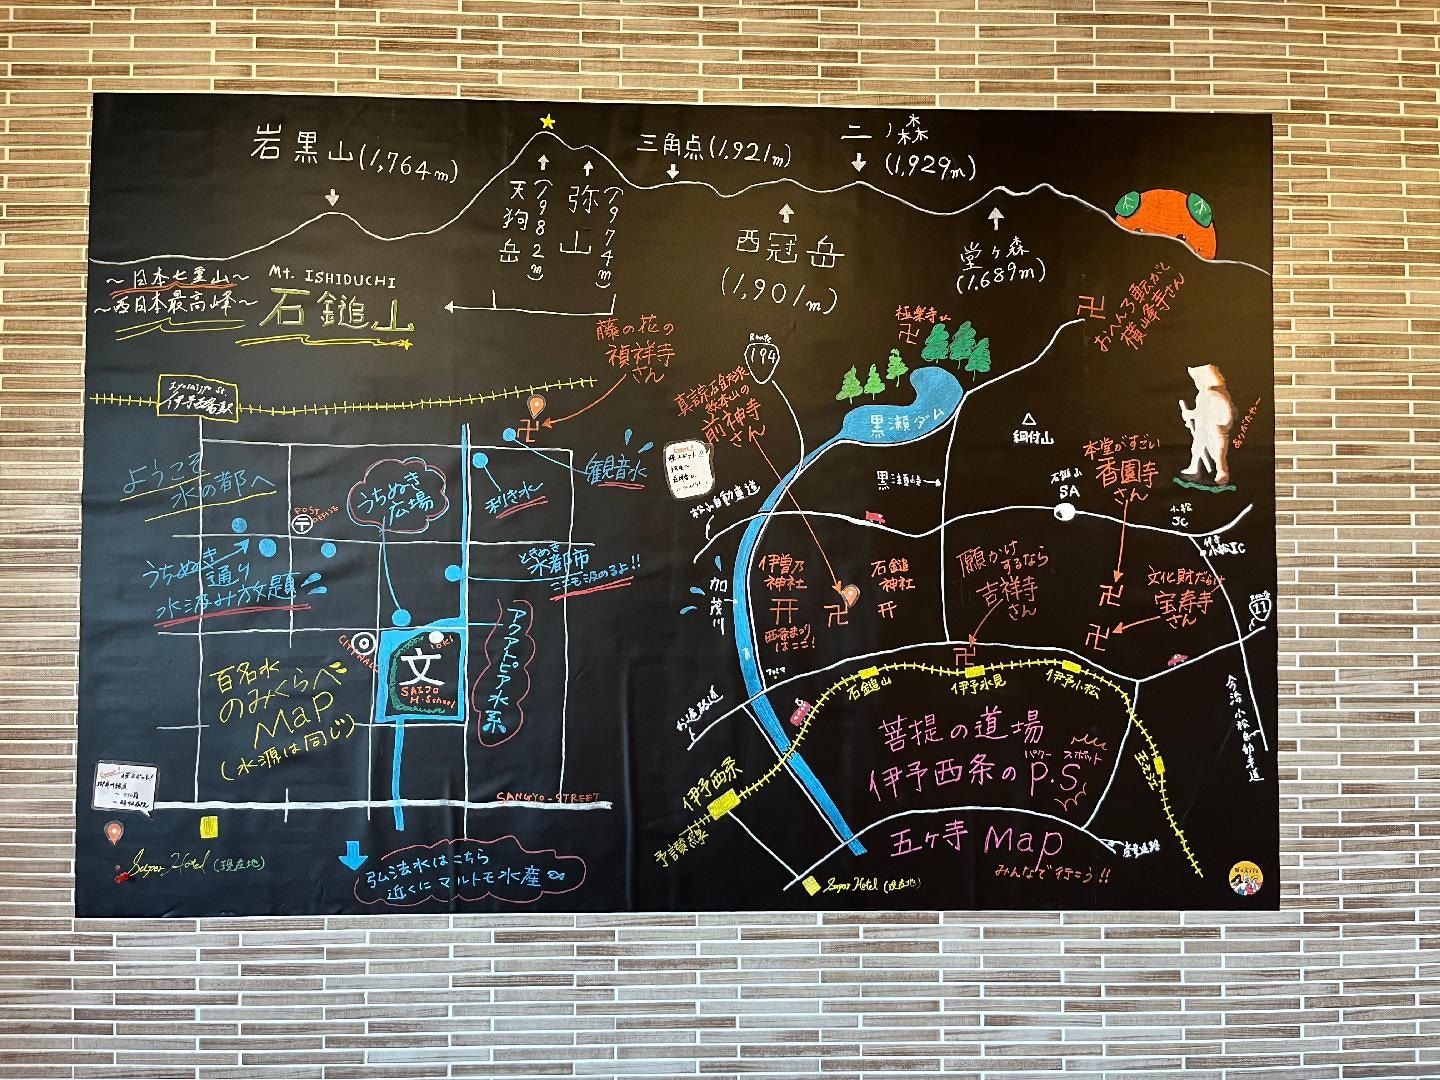 岩黒山(1,764m)
天狗岳(1982m)
弥山(1974m)
三角点(1,921m)
二ノ森
(1,929m)
西冠岳
(1,901m)
堂ヶ森
(1,689m)
～日本七霊山～
～西日本最高峰～
Mt. ISHIDUCHI
石鎚山
伊予西条駅
ようこそ
水の都へ
POST
OFFICE
うちぬき
広場
藤の花の
禎祥寺
さん
観音水
利き水～
うちぬき
通り
水汲み放題!
ときめき
水都市
CITY HALL
文
SAIJO
H-School
アクアトピア水系
百名水
のみくらべ
Map
(水源は同じ)
SANGYO-STREET
Super Hotel (現在地)
弘法水はこちら
近くにマルトモ水産
Route
194
極楽寺さん
黒瀬ダム
前神寺
さん
おへんろ転がし
横峰寺さん
黒瀬峠→
松山自動車道
加茂川
伊曽乃
神社
西条まつり
はここ!
石鎚
神社
願かけ
するなら
吉祥寺
さん
石鎚山
SA
小松
JC
本堂がすごい
香園寺
さん
文化財だらけ
宝寿寺
さん
Route
11
今治小松自動車道
石鎚山
伊予氷見
伊予小松
玉之江
伊予西条
予讃線
菩提の道場
伊予西条のP.S
パワースポット
五ヶ寺 Map
みんなで行こう!!
産業道路
Super Hotel (現在地)